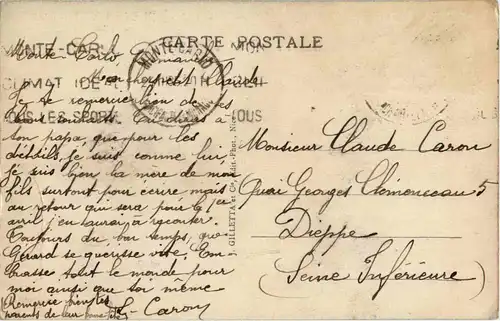 CARTE POSTALE
MONTE-CARLO MON
CLIMAT IDÉAL
TOUS LES SPORTS TOUS
MONTE-CARLO
Monte-Carlo Dimanche
Mon cher petit Claude
Je te remercie de
Tu diras à
ton papa que pour les
détails, je suis comme lui,
je suis bien la mère de mon
fils surtout pour écrire mais
au retour qui sera pour le
avril j'en aurai à raconter.
Toujours du bon temps, que
Gérard se guérisse vite. Em-
brasse tout le monde pour
moi ainsi que toi même
Remercie
parents de leur bonne
L. Caron
GILLETTA et Cie, Édit.-Phot., Nice
Monsieur Claude Caron
Quai Georges Clémenceau 5
Dieppe
(Seine Inférieure)